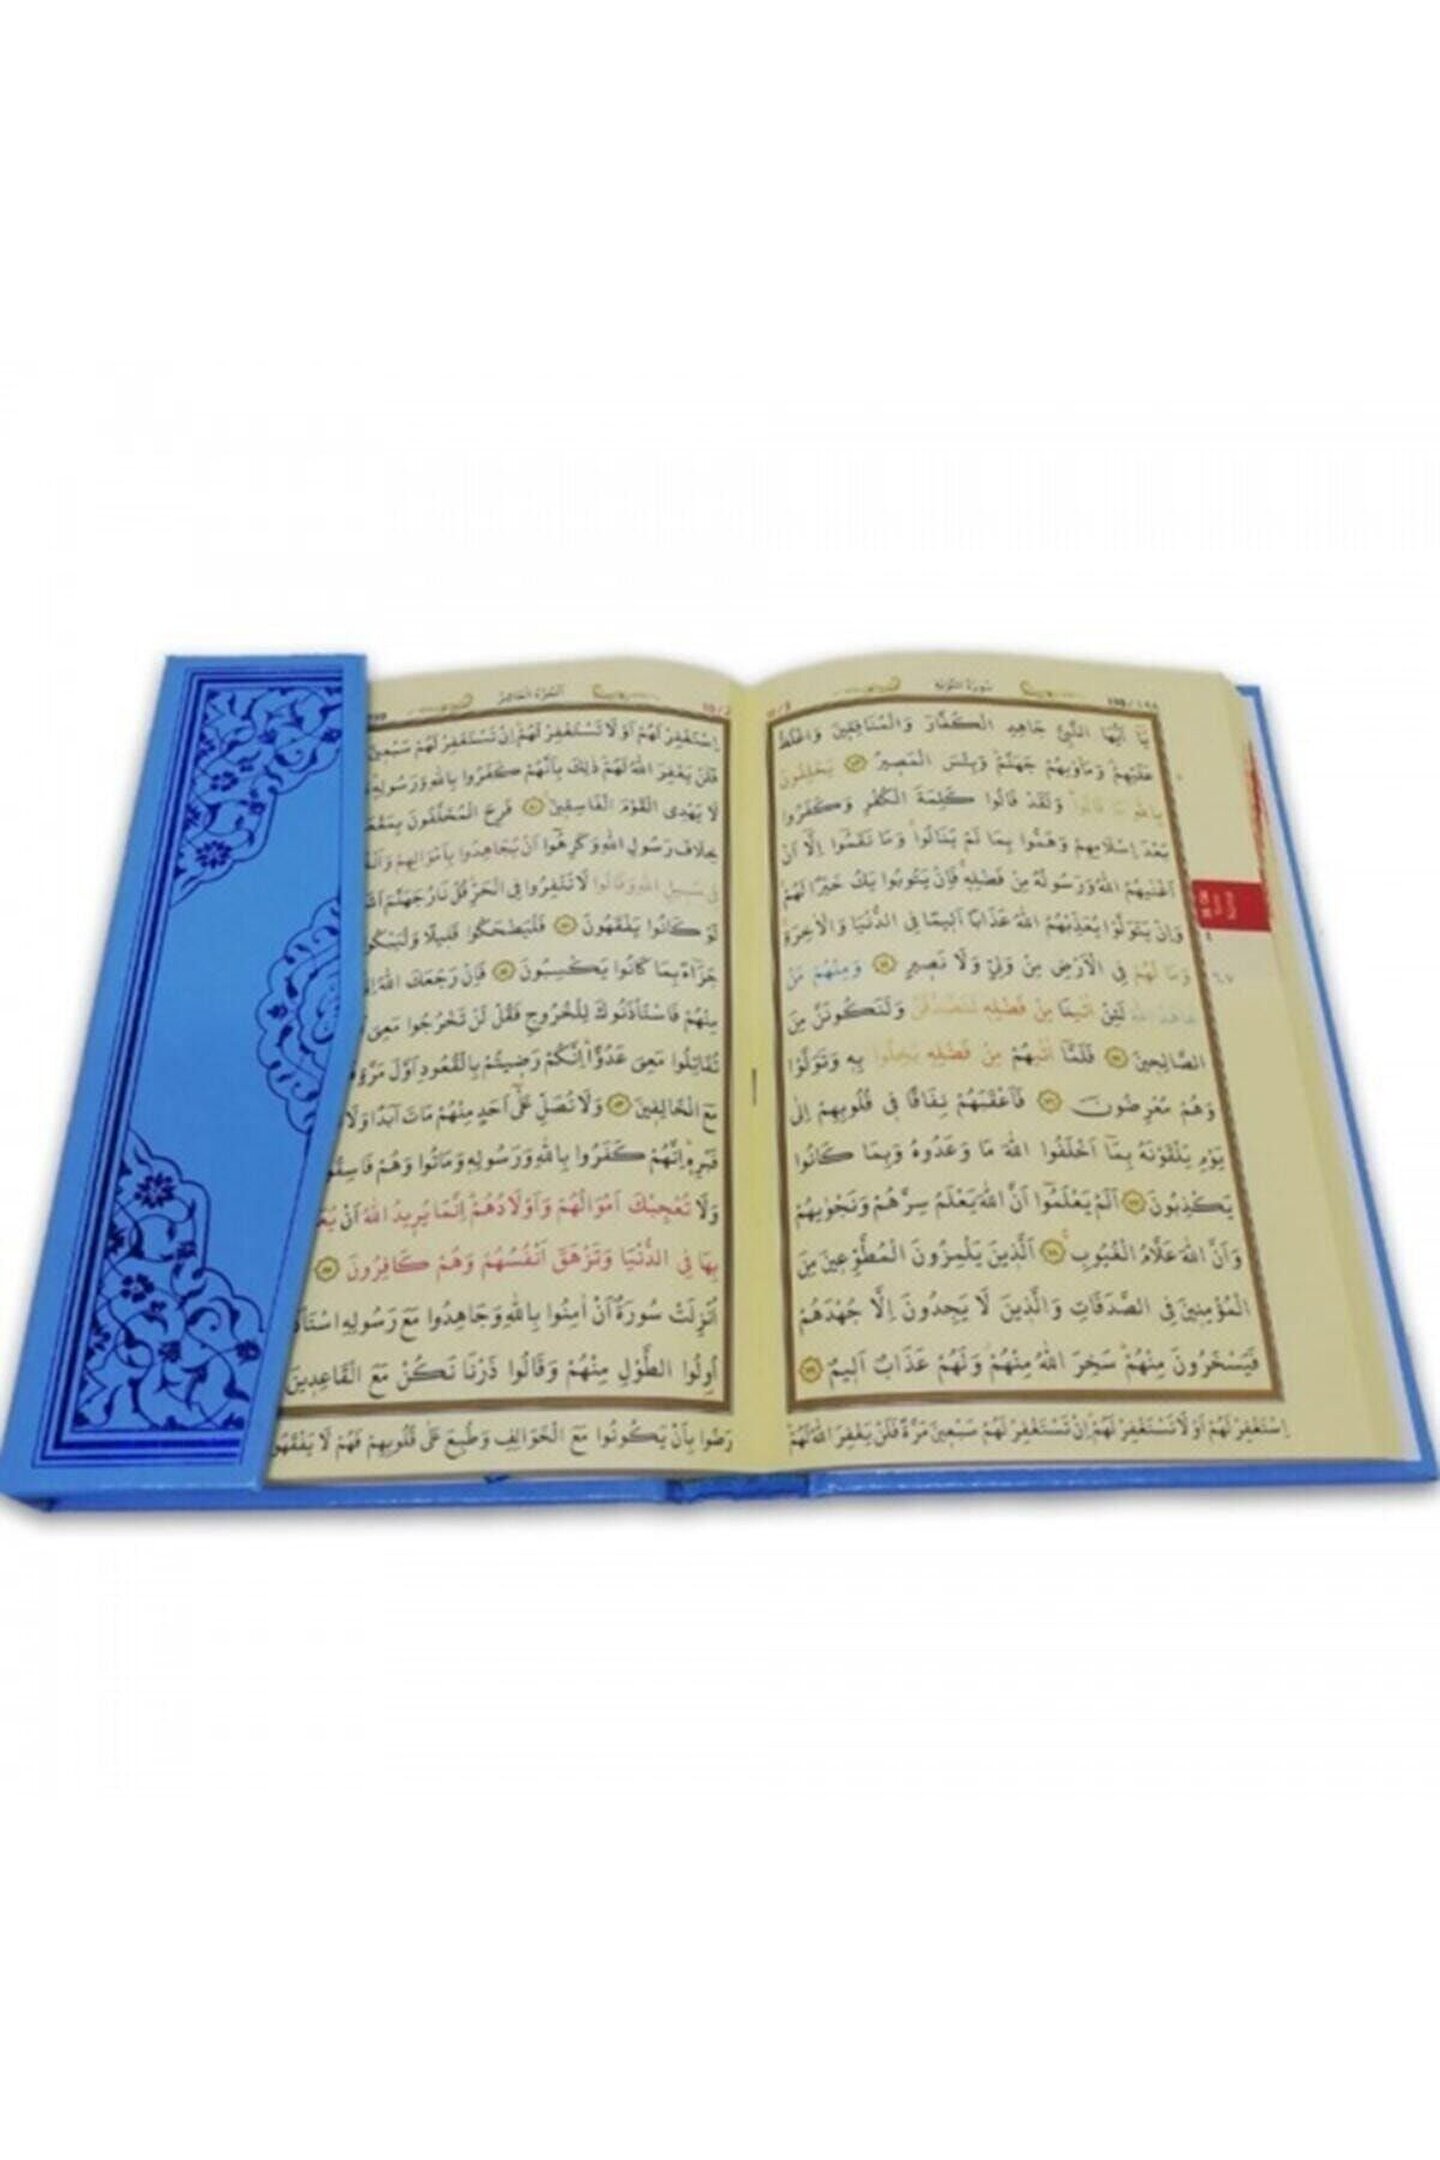 سورة التوبة
١٩٨
يَٓا اَيُّهَا النَّبِيُّ جَاهِدِ الْكُفَّارَ وَالْمُنَافِقِينَ وَاغْلُظْ
عَلَيْهِمْ وَمَأْوٰيهُمْ جَهَنَّمُ وَبِئْسَ الْمَصِيرُ ﴿٧٣﴾ يَحْلِفُونَ
بِاللّٰهِ مَا قَالُوا وَلَقَدْ قَالُوا كَلِمَةَ الْكُفْرِ وَكَفَرُوا
بَعْدَ اِسْلَامِهِمْ وَهَمُّوا بِمَا لَمْ يَنَالُوا وَمَا نَقَمُٓوا اِلَّٓا اَنْ
اَغْنٰيهُمُ اللّٰهُ وَرَسُولُهُ مِنْ فَضْلِهِ فَاِنْ يَتُوبُوا يَكُ خَيْرًا لَهُمْ
وَاِنْ يَتَوَلَّوْا يُعَذِّبْهُمُ اللّٰهُ عَذَابًا اَلِيمًا فِي الدُّنْيَا وَالْاٰخِرَةِ
وَمَا لَهُمْ فِي الْاَرْضِ مِنْ وَلِيٍّ وَلَا نَصِيرٍ ﴿٧٤﴾ وَمِنْهُمْ مَنْ
عَاهَدَ اللّٰهَ لَئِنْ اٰتٰينَا مِنْ فَضْلِهِ لَنَصَّدَّقَنَّ وَلَنَكُونَنَّ مِنَ
الصَّالِحِينَ ﴿٧٥﴾ فَلَمَّٓا اٰتٰيهُمْ مِنْ فَضْلِهِ بَخِلُوا بِهِ وَتَوَلَّوْا
وَهُمْ مُعْرِضُونَ ﴿٧٦﴾ فَاَعْقَبَهُمْ نِفَاقًا فِي قُلُوبِهِمْ اِلٰى
يَوْمِ يَلْقَوْنَهُ بِمَٓا اَخْلَفُوا اللّٰهَ مَا وَعَدُوهُ وَبِمَا كَانُوا
يَكْذِبُونَ ﴿٧٧﴾ اَلَمْ يَعْلَمُٓوا اَنَّ اللّٰهَ يَعْلَمُ سِرَّهُمْ وَنَجْوٰيهُمْ
وَاَنَّ اللّٰهَ عَلَّامُ الْغُيُوبِ ﴿٧٨﴾ اَلَّذِينَ يَلْمِزُونَ الْمُطَّوِّعِينَ مِنَ
الْمُؤْمِنِينَ فِي الصَّدَقَاتِ وَالَّذِينَ لَا يَجِدُونَ اِلَّا جُهْدَهُمْ
فَيَسْخَرُونَ مِنْهُمْ سَخِرَ اللّٰهُ مِنْهُمْ وَلَهُمْ عَذَابٌ اَلِيمٌ ﴿٧٩﴾
اِسْتَغْفِرْ لَهُمْ اَوْ لَا تَسْتَغْفِرْ لَهُمْ اِنْ تَسْتَغْفِرْ لَهُمْ سَبْعِينَ مَرَّةً فَلَنْ يَغْفِرَ اللّٰهُ لَهُمْ
الجزء العاشر
اِسْتَغْفِرْ لَهُمْ اَوْ لَا تَسْتَغْفِرْ لَهُمْ اِنْ تَسْتَغْفِرْ لَهُمْ سَبْعِينَ
فَلَنْ يَغْفِرَ اللّٰهُ لَهُمْ ذٰلِكَ بِاَنَّهُمْ كَفَرُوا بِاللّٰهِ وَرَسُولِهِ
لَا يَهْدِي الْقَوْمَ الْفَاسِقِينَ ﴿٨٠﴾ فَرِحَ الْمُخَلَّفُونَ
خِلَافَ رَسُولِ اللّٰهِ وَكَرِهُٓوا اَنْ يُجَاهِدُوا بِاَمْوَالِهِمْ
فِي سَبِيلِ اللّٰهِ وَقَالُوا لَا تَنْفِرُوا فِي الْحَرِّ قُلْ نَارُ جَهَنَّمَ
لَوْ كَانُوا يَفْقَهُونَ ﴿٨١﴾ فَلْيَضْحَكُوا قَلِيلًا وَلْيَبْكُوا
جَزَٓاءً بِمَا كَانُوا يَكْسِبُونَ ﴿٨٢﴾ فَاِنْ رَجَعَكَ اللّٰهُ
مِنْهُمْ فَاسْتَأْذَنُوكَ لِلْخُرُوجِ فَقُلْ لَنْ تَخْرُجُوا مَعِيَ
تُقَاتِلُوا مَعِيَ عَدُوًّا اِنَّكُمْ رَضِيتُمْ بِالْقُعُودِ اَوَّلَ مَرَّةٍ
مَعَ الْخَالِفِينَ ﴿٨٣﴾ وَلَا تُصَلِّ عَلٰٓى اَحَدٍ مِنْهُمْ مَاتَ اَبَدًا وَلَا
قَبْرِهِ اِنَّهُمْ كَفَرُوا بِاللّٰهِ وَرَسُولِهِ وَمَاتُوا وَهُمْ
وَلَا تُعْجِبْكَ اَمْوَالُهُمْ وَاَوْلَادُهُمْ اِنَّمَا يُرِيدُ اللّٰهُ اَنْ
بِهَا فِي الدُّنْيَا وَتَزْهَقَ اَنْفُسُهُمْ وَهُمْ كَافِرُونَ ﴿٨٥﴾
اُنْزِلَتْ سُورَةٌ اَنْ اٰمِنُوا بِاللّٰهِ وَجَاهِدُوا مَعَ رَسُولِهِ
اُولُوا الطَّوْلِ مِنْهُمْ وَقَالُوا ذَرْنَا نَكُنْ مَعَ الْقَاعِدِينَ
رَضُوا بِاَنْ يَكُونُوا مَعَ الْخَوَالِفِ وَطُبِعَ عَلٰى قُلُوبِهِمْ فَهُمْ لَا يَفْقَهُونَ